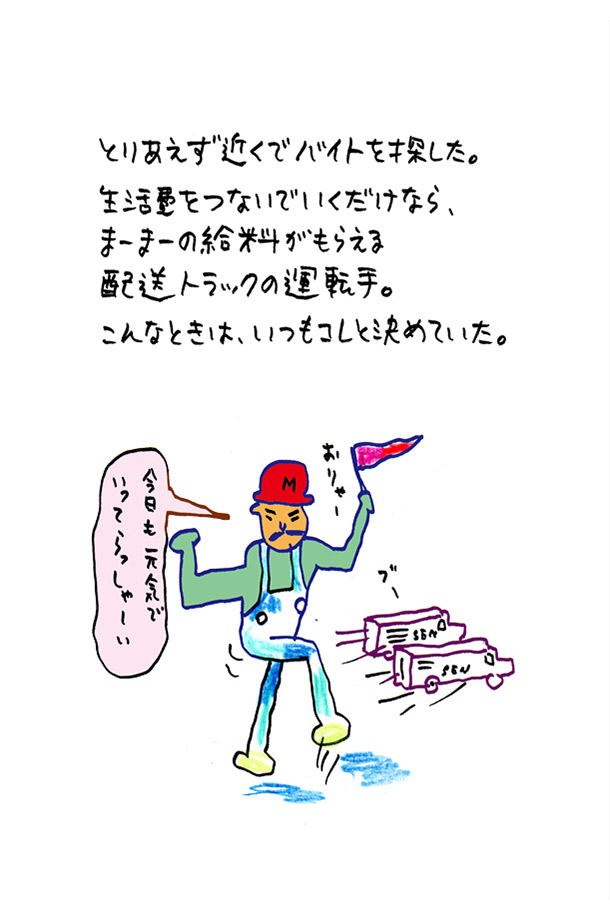 とりあえず近くでバイトを探した。
生活費をつないでいくだけなら、
まーまーの給料がもらえる
配送トラックの運転手。
こんなときは、いつもコレと決めていた。
おりゃー
M
今日も元気で
いってらっしゃーい
ブー
SEN
SEN